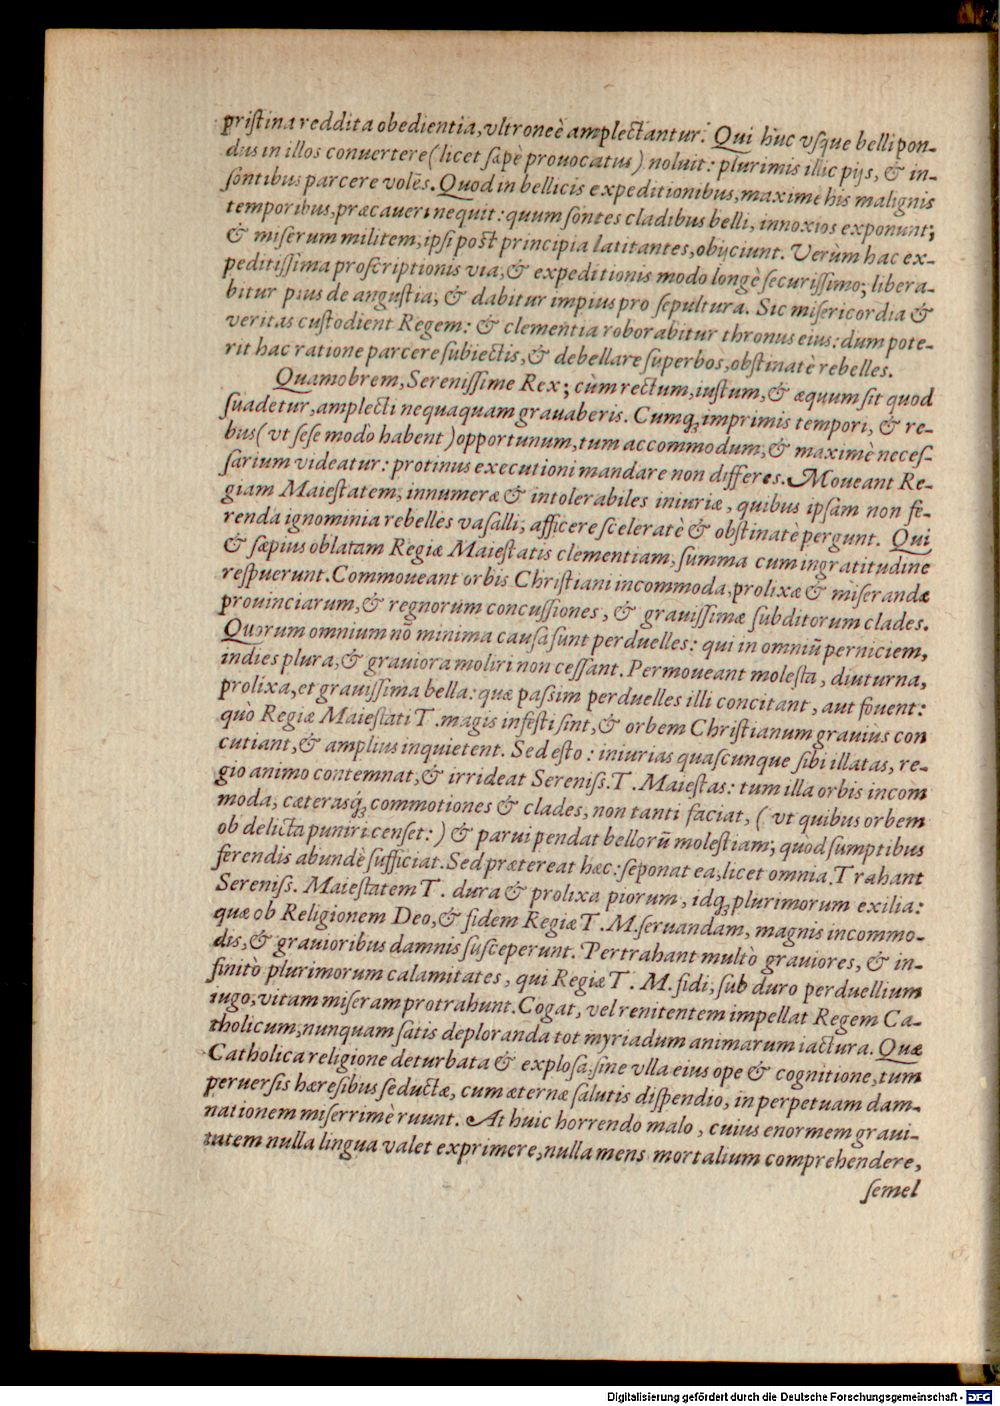 priſtina reddita obedientia, vltroneè amplectantur. Qui huc vſque belli pon-
dus in illos conuertere (licet ſæpè prouocatus) noluit: plurimis illic pijs, & in-
ſontibus parcere volẽs. Quod in bellicis expeditionibus, maximè his malignis
temporibus, præcaueri nequit: quum ſontes cladibus belli, innoxios exponunt;
& miſerum militem, ipſi poſt principia latitantes, obijciunt. Verùm hac ex-
peditiſſima proſcriptionis via, & expeditionis modo longè ſecuriſſimo; libera-
bitur pius de anguſtia, & dabitur impius pro ſepultura. Sic miſericordia &
veritas cuſtodient Regem: & clementia roborabitur thronus eius: dum pote-
rit hac ratione parcere ſubiectis, & debellare ſuperbos, obſtinatè rebelles.
Quamobrem, Sereniſſime Rex; cùm rectum, iuſtum, & æquum ſit quod
ſuadetur, amplecti nequaquam grauaberis. Cumq́ʒ imprimis tempori, & re-
bus (vt ſeſe modò habent) opportunum, tum accommodum, & maximè neceſ-
ſarium videatur: protinus executioni mandare non differes. Moueant Re-
giam Maieſtatem, innumeræ & intolerabiles iniuriæ, quibus ipſam non fe-
renda ignominia rebelles vaſalli, afficere ſceleratè & obſtinatè pergunt. Qui
& ſæpius oblatam Regiæ Maieſtatis clementiam, ſumma cum ingratitudine
reſpuerunt. Commoueant orbis Chriſtiani incommoda, prolixæ & miſerandæ
prouinciarum, & regnorum concuſſiones, & grauiſſimæ ſubditorum clades.
Quorum omnium nõ minima cauſa ſunt perduelles: qui in omniũ perniciem,
indies plura, & grauiora moliri non ceſſant. Permoueant moleſta, diuturna,
prolixa, et grauiſſima bella: quæ paſſim perduelles illi concitant, aut fouent:
quò Regiæ Maieſtati T. magis infeſti ſint, & orbem Chriſtianum grauius con
cutiant, & amplius inquietent. Sed eſto: iniurias quaſcunque ſibi illatas, re-
gio animo contemnat, & irrideat Sereniſs. T. Maieſtas: tum illa orbis incom
moda, cæterasq́ʒ commotiones & clades, non tanti faciat, (vt quibus orbem
ob delicta puniri cenſet:) & parui pendat bellorũ moleſtiam, quòd ſumptibus
ferendis abundè ſufficiat. Sed prætereat hæc: ſeponat ea, licet omnia. Trahant
Sereniſs. Maieſtatem T. dura & prolixa piorum, idqʒ plurimorum exilia:
quæ ob Religionem Deo, & fidem Regiæ T. M. ſeruandam, magnis incommo-
dis, & grauioribus damnis ſuſceperunt. Pertrahant multò grauiores, & in-
finitò plurimorum calamitates, qui Regiæ T. M. fidi, ſub duro perduellium
iugo, vitam miſeram protrahunt. Cogat, vel renitentem impellat Regem Ca-
tholicum, nunquam ſatis deploranda tot myriadum animarum iactura. Quæ
Catholica religione deturbata & exploſa, ſine vlla eius ope & cognitione, tum
peruerſis hæreſibus ſeductæ, cum æternæ ſalutis diſpendio, in perpetuam dam-
nationem miſerrimè ruunt. At huic horrendo malo, cuius enormem graui-
tatem nulla lingua valet exprimere, nulla mens mortalium comprehendere,
ſemel
Digitalisierung gefördert durch die Deutsche Forschungsgemeinschaft - DFG